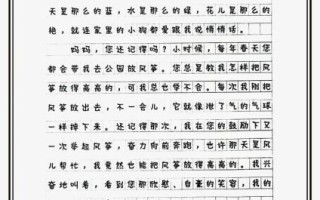 天是那么的蓝，水是那么的绿，花儿是那么的
艳，就连家里的小狗都爱跟我说悄悄话。
妈妈，您还记得吗？小时候，每年春天您
都会带我去公园放风筝。您总是教我怎样把风
筝放得高高的，可我总也学不会。每次我刚把
风筝放出去，不一会儿，它就像泄了气的气球
一样掉下来。还记得那次，我在您的鼓励下又
一次举起风筝，奋力向前奔跑，也许那天是风
儿帮忙，我竟然也能把风筝放得高高的。我兴
奋地叫着，看到您那欣慰、自豪的笑容，我的